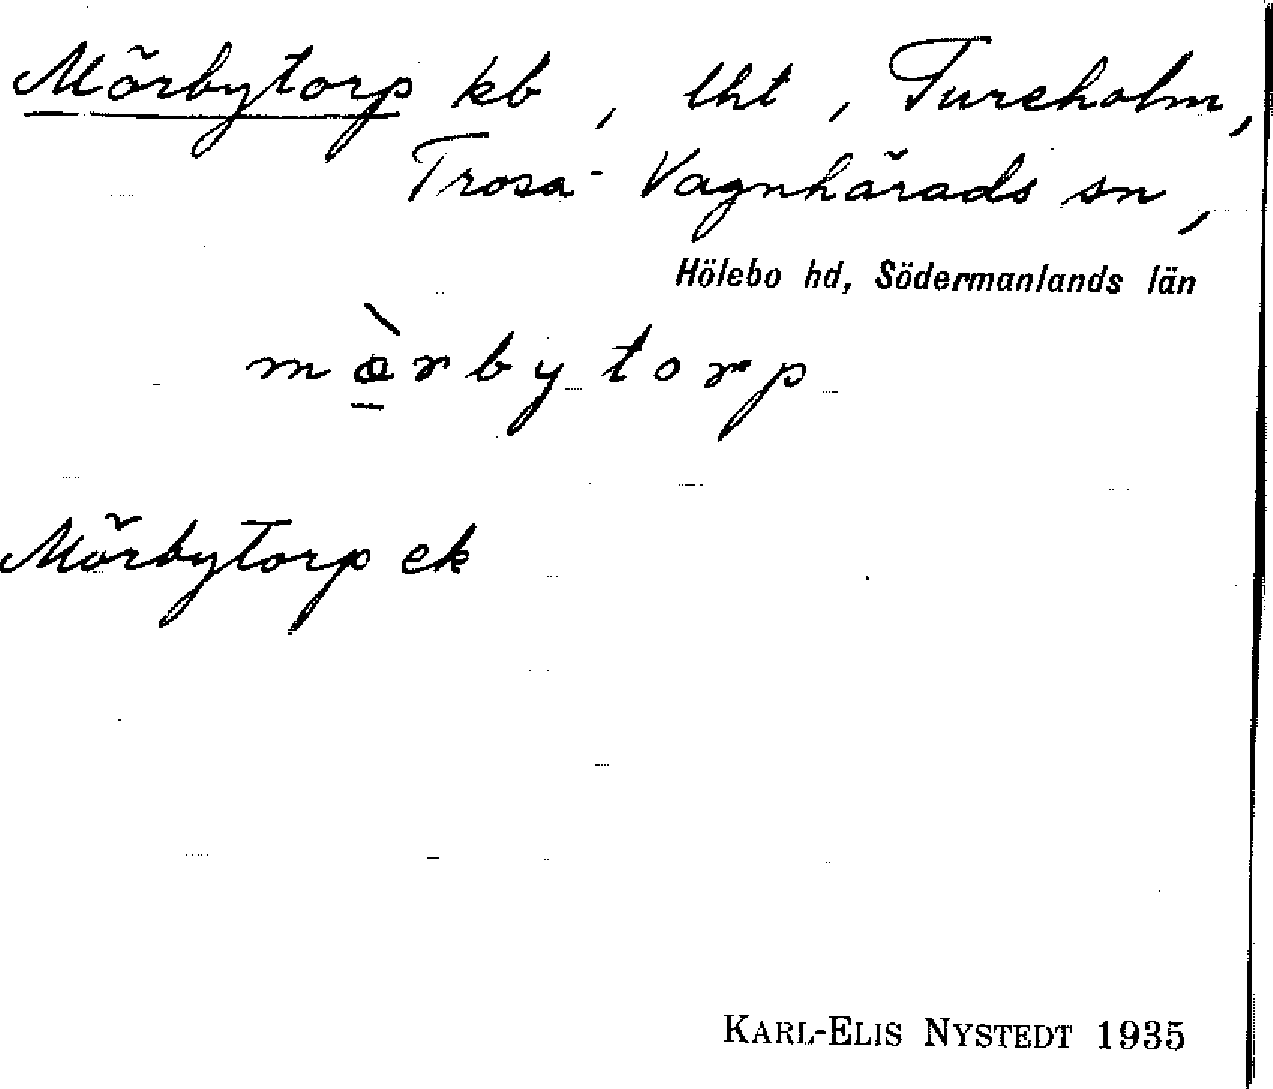 Mörbytorp kb, lht, Tureholm,
Trosa-Vagnhärads sn,
Hölebo hd, Södermanlands län
mø̀rbytorp
Mörbytorp ek
KARL-ELIS NYSTEDT 1935